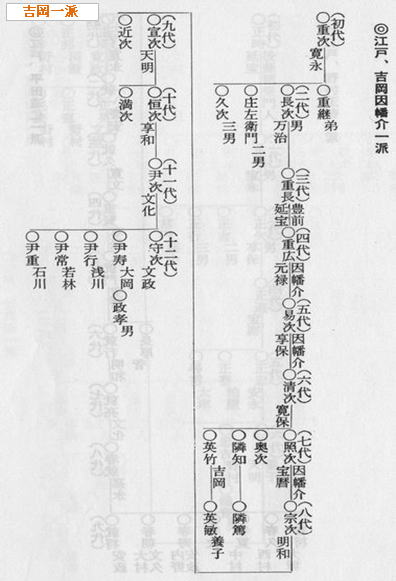 吉岡一派
◎江戸、吉岡因幡介一派
(初代)
○重次 寛永
○重継 弟
(二代)
○長次 男 万治
○庄左衛門 二男
○久次 三男
(三代)
○重長 豊前 延宝
(四代)
○重広 因幡介 元禄
(五代)
○易次 因幡介 享保
(六代)
○清次 因幡介 寛保
(七代)
○照次 因幡介 宝暦
○奥次
○隣知
○隣篤
○英竹 吉岡
○英敏 養子
(八代)
○宗次 明和
(九代)
○宣次 天明
○近次
(十代)
○恒次 享和
○満次
(十一代)
○尹次 文化
(十二代)
○守次 文政
○尹寿 大岡
○政孝 男
○尹行 浅川
○尹常 若林
○尹重 石川